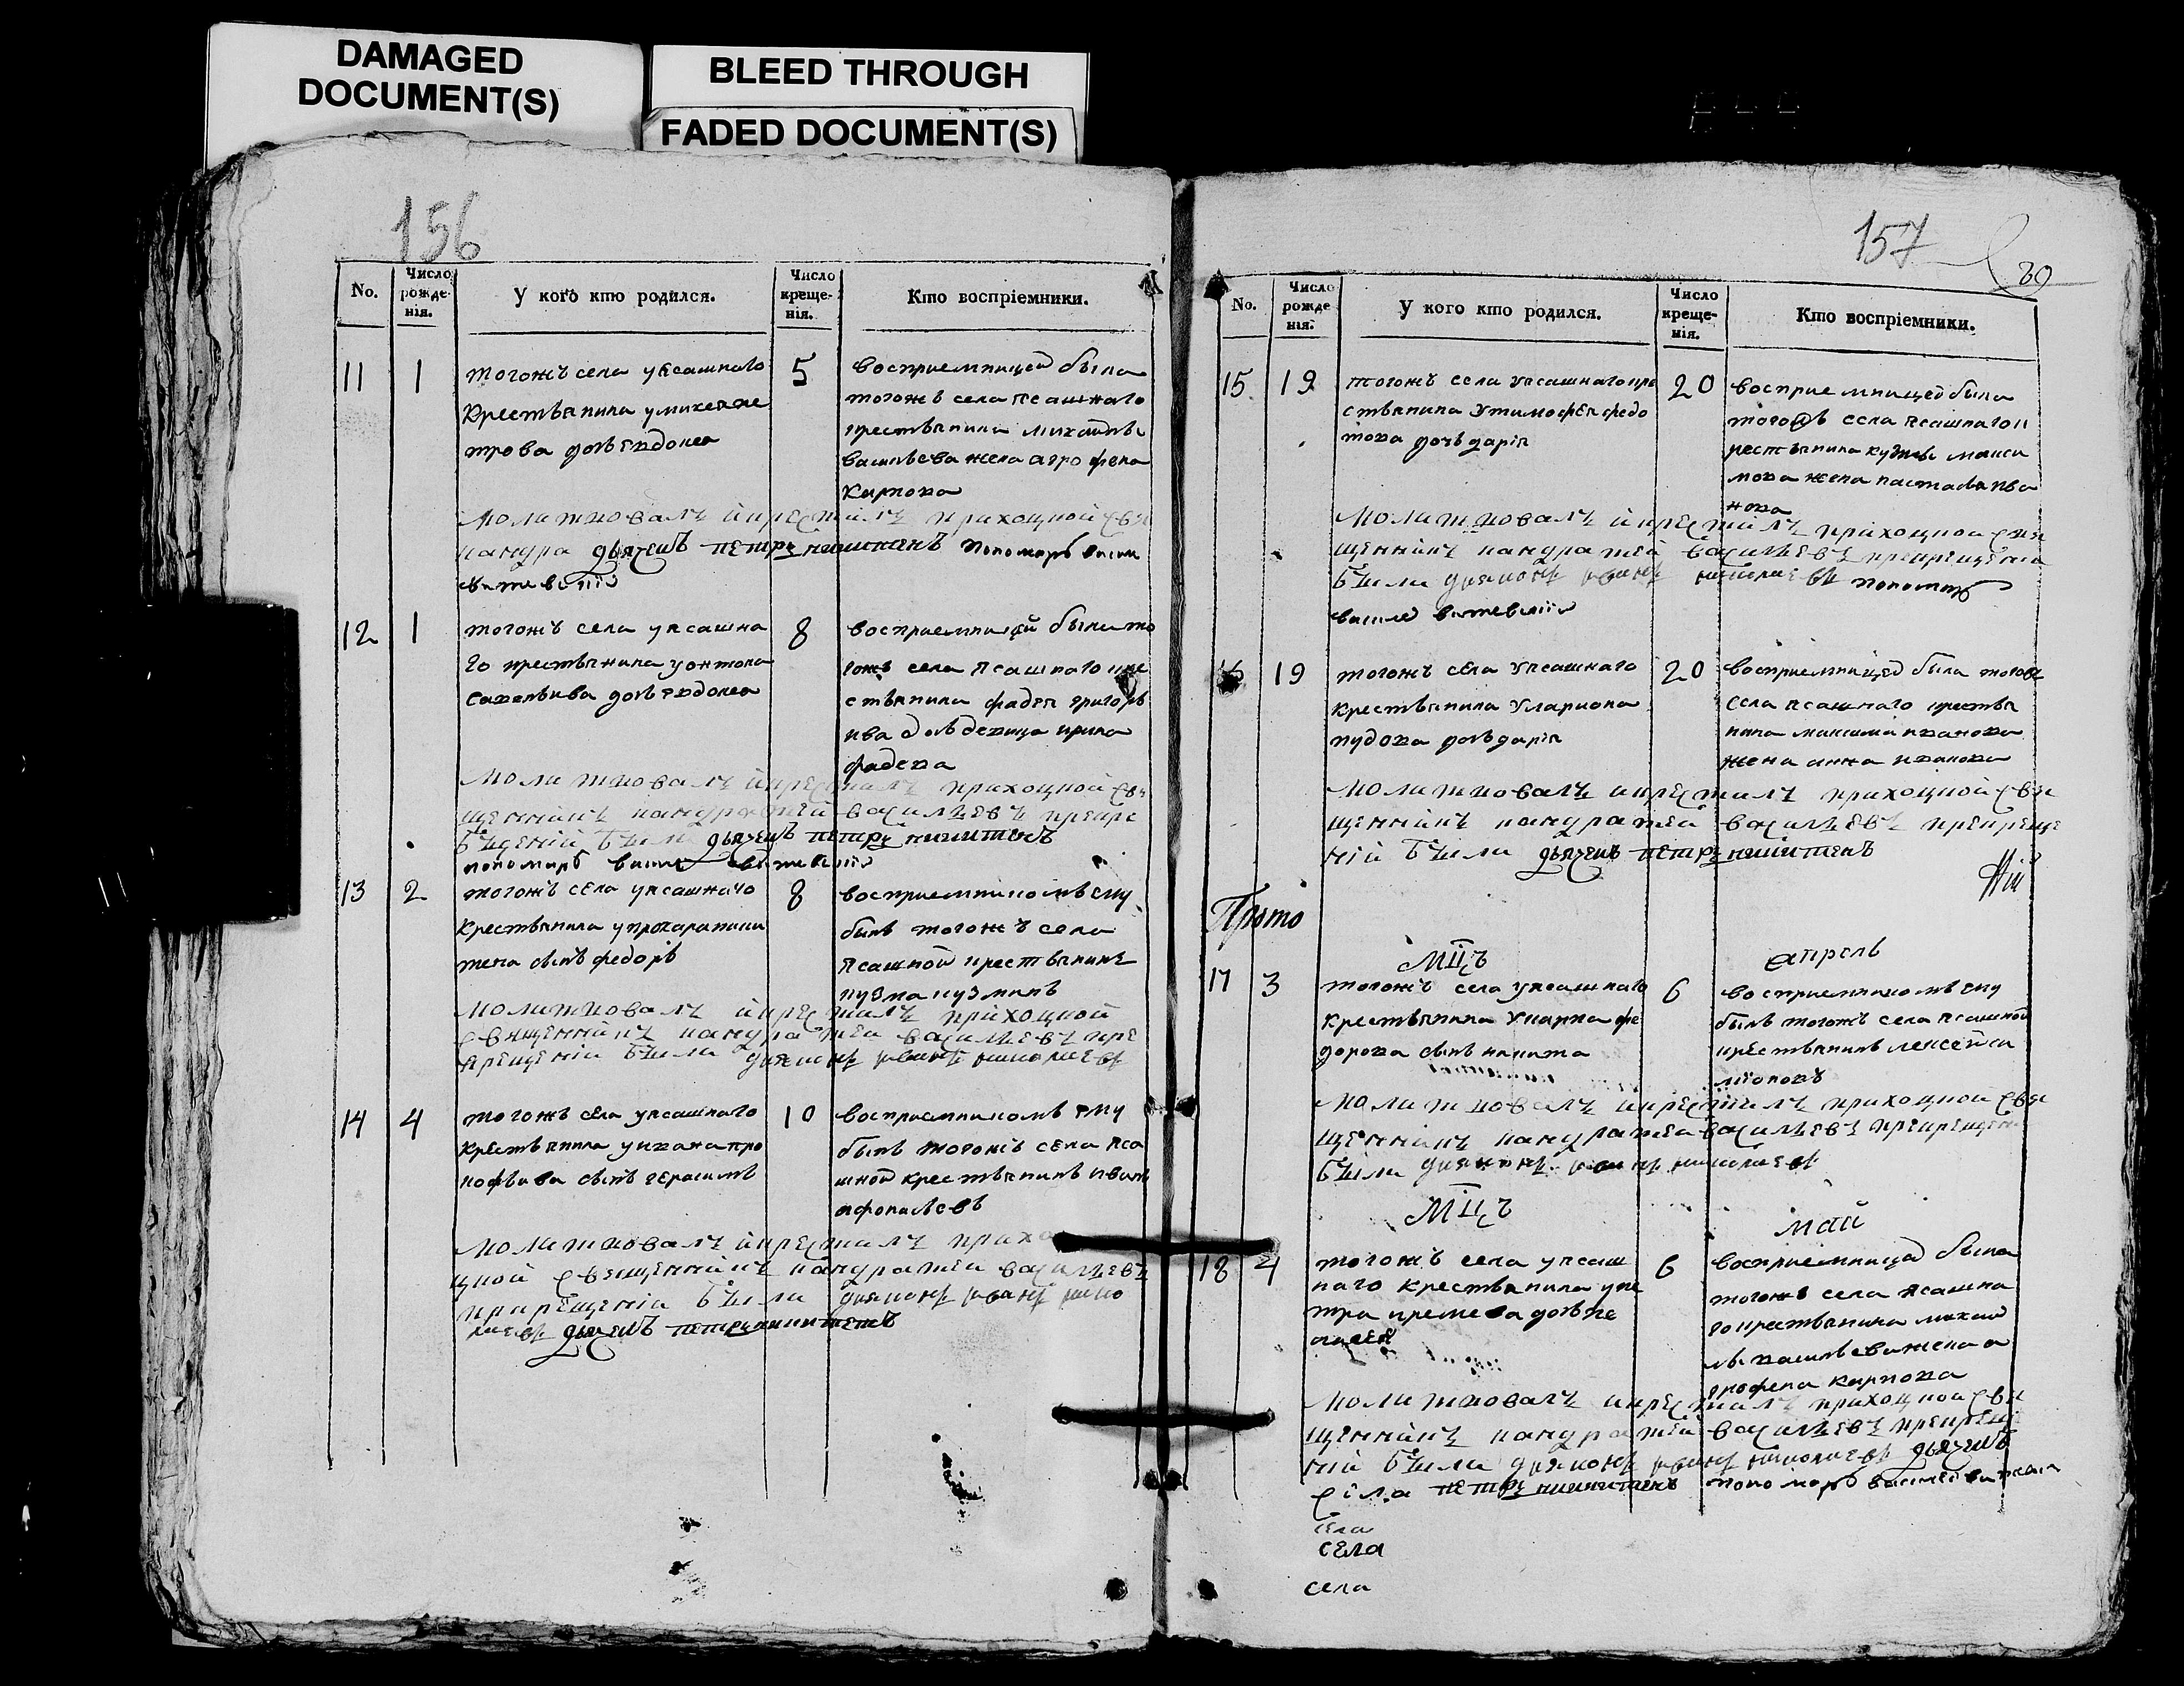 DAMAGED
DOCUMENT(S)
BLEED THROUGH
FADED DOCUMENT(S)
156
No.
Число рожде-нія.
У кого кто родился.
Число креще-нія.
Кто воспріемники.
11
1
тогожъ села уясашнаго
крестьянина умихея пе
трова дочь евдокея
5
восприемницей была
тогожъ села ясашнаго
крестьянина михаилы
васильева жена агрофена
карпова
молитвовалъ и крестилъ приходной свя
кандра дьячекъ петръ никитенъ пономарь васи
12
1
тогожъ села уясашна
го крестьянина уонтона
савельива дочь евдокеа
8
восприемницей была то
гожъ села ясашнаго кре
стьянина фадея григорь
ива дочь девица ирина
фадева
молитвовалъ и крестилъ приходной свя
щенникъ кандратей васильевъ прикре
щеній были дьячекъ петръ никитенъ
пономарь васи
13
2
тогожъ села уясашнаго
крестьянина упрохараники
тена сынъ федоръ
8
восприемникомъ ему
былъ тогожъ села
ясашной крестьянинъ
кузма кузминъ
молитвовалъ и крестилъ приходной
священникъ кандратеи васильевъ при
крещеніи были дияконъ иванъ николаевъ
14
4
тогожъ села уясашнаго
крестьянина уивана про
кофьива сынъ герасимъ
10
восприемникомъ ему
былъ тогожъ села яса
шной крестьянинъ иванъ
афонасьевъ
молитвовалъ и крестилъ прихо
цной священникъ кандратеи васильевъ
прикрещеніи были дияконъ иванъ нико
лаевъ дьячекъ петръ никитенъ
157
No.
Число рожде нія.
У кого кто родился.
Число креще-нія.
Кто воспріемники.
15
19
тогожъ села уясашнаго кре
стьянина утимофея федо
това дочь дарія
20
восприемницей была
тогожъ села ясашнаго к
рестьянина кузмы макси
мова жена настасья ива
нова
молитвовалъ и крестилъ приходной свя
щенникъ кандратей васильевъ прикрещени
были дияконъ иванъ николаевъ пономарь
19
тогожъ села уясашнаго
крестьянина улариона
пудова дочь дарія
20
восприемницей была тогожъ
села ясашнаго крестья
нина максима иванова
жена анна иванова
молитвовалъ и крестилъ приходной свя
щенникъ кандратей васильевъ прикреще
ніи были дьячекъ петръ никитенъ
Прото
мцъ
апрель
17
3
тогожъ села уясашнаго
крестьянина укарпа фе
дорова сынъ никита
6
восприемникомъ ему
былъ тогожъ села ясашной
крестьянинъ лексей си
міоновъ
молитвовалъ и крестилъ приходной свя
щенникъ кандратей васильевъ прикрещени
были дияконъ иванъ николаевъ
мцъ
май
18
4
тогожъ села уясаш
наго крестьянина упе
тра
6
восприемницей была
тогожъ села ясашна
го крестьянина михаи
лы васильева жена а
грофена карпова
молитвовалъ и крестилъ приходной свя
щенникъ кандратей васильевъ прикрещ
ніи были дияконъ иванъ николаевъ дьячекъ
села петръ никитенъ пономарь василей
села
села
села